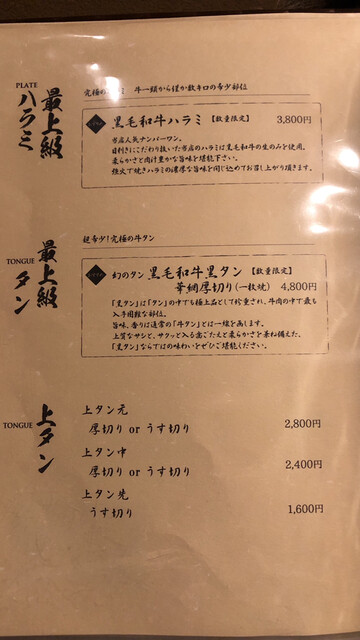 PLATE
最上級
ハラミ
牛一頭から僅か数キロの希少部位
黒毛和牛ハラミ【数量限定】 3,800円
当店人気ナンバーワン。
目利きにこだわり抜いた当店のハラミは黒毛和牛の生のみを使用。
柔らかさと肉汁豊かな旨味を堪能下さい。
強火で焼きハラミの濃厚な旨味を閉じ込めてお召し上がり頂きます。
TONGUE
最上級
タン
超希少!究極の牛タン
幻のタン 黒毛和牛黒タン【数量限定】
華網厚切り(一枚焼) 4,800円
「黒タン」は「タン」の中でも極上品として珍重され、牛肉の中で最も
入手困難な部位。
旨味、香りは通常の「牛タン」とは一線を画します。
上質なサシと、サクッと入る歯ごたえと柔らかさを兼ね備えた。
「黒タン」ならではの味わいをぜひご堪能ください。
TONGUE
上タン
上タン元
厚切り or うす切り 2,800円
上タン中
厚切り or うす切り 2,400円
上タン先
うす切り 1,600円